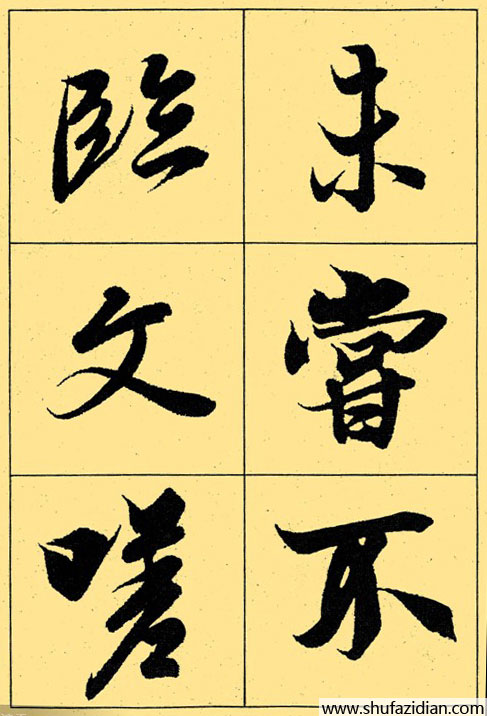 未嘗不
臨文嗟
www.shufazidian.com